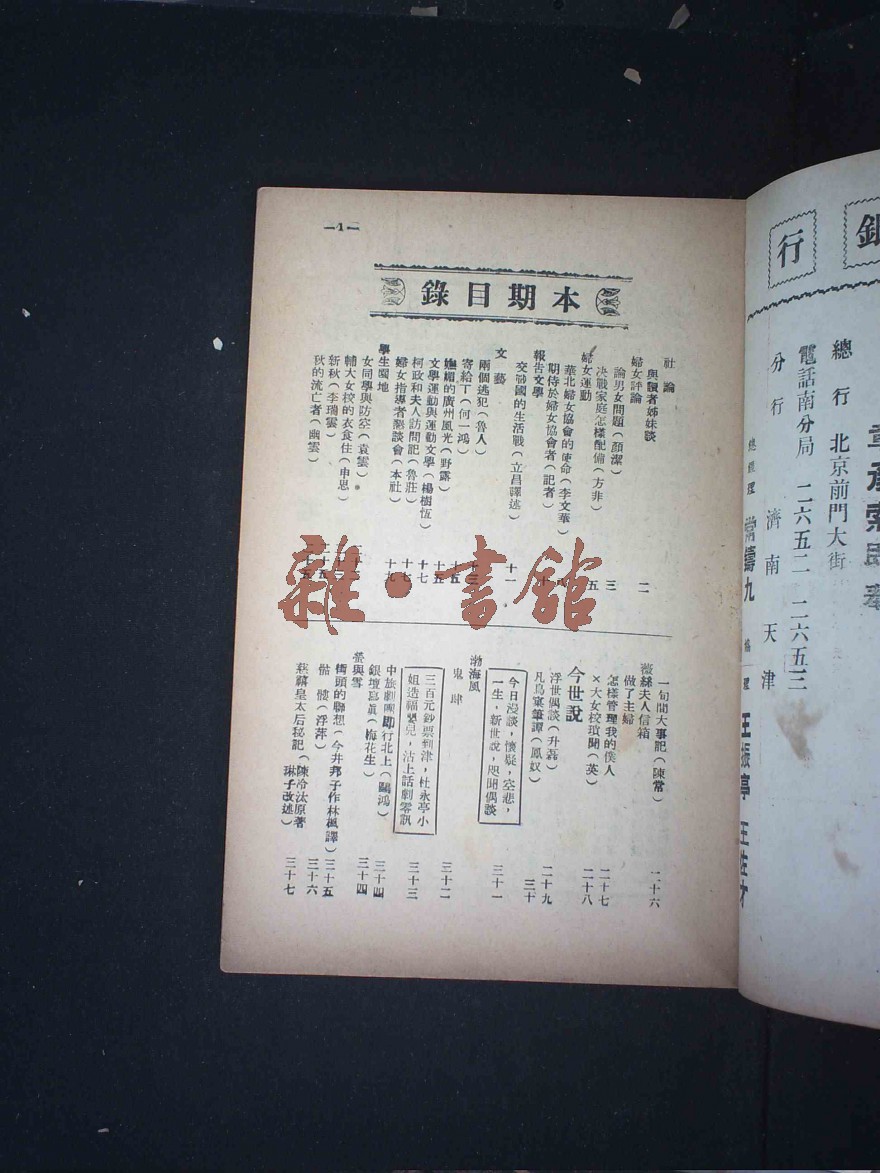 —1—
本期目錄
社論
與讀者姊妹談
二
婦女評論
論男女問題(顏潔)
三
决戰家庭怎樣配備(方非)
五
婦女運動
華北婦女協會的使命(李文華)
期待於婦女協會者(記者)
報告文學
交戰國的生活戰(立昌譯述)
十一
文藝
兩個逃犯(魯人)
寄給丁(何一鴻)
嫵媚的廣州風光(野露)
十五
文學運動與運動文學(楊樹恆)
十七
柯政和夫人訪問記(魯莊)
十七
婦女指導者懇談會(本社)
十九
學生園地
女同學與防空(袁雲)
輔大女校的衣食住(申思)
新秋(李瑞雲)
秋的流亡者(幽雲)
一旬間大事記(陳常)
二十六
薇絲夫人信箱
做了主婦
怎樣管理我的僕人
二十七
×大女校瑣聞(英)
二十八
今世說
浮世偶談(升磊)
二十九
凡鳥窠筆譚(鳳奴)
三十
今日漫談,懷疑,空悲,
一生,新世說,咫聞偶談
三十一
渤海風
鬼肆
三十二
三百元鈔票到津,杜永亭小
姐造福嬰兒,沽上話劇零訊
三十三
中旅劇團即行北上(鷗鴻)
三十四
銀壇寫眞(梅花生)
三十四
螢與雪
橋頭的聯想(今井邦子作林楓譯)
三十五
骷髏(浮萍)
三十六
慈禧皇太后秘記(陳冷汰原著
琳子改述)
三十七
雜·書館
銀
行
總行 北京前門大街
電話南分局 二六五二 二六五三
分行 濟南 天津
總經理 常鑄九